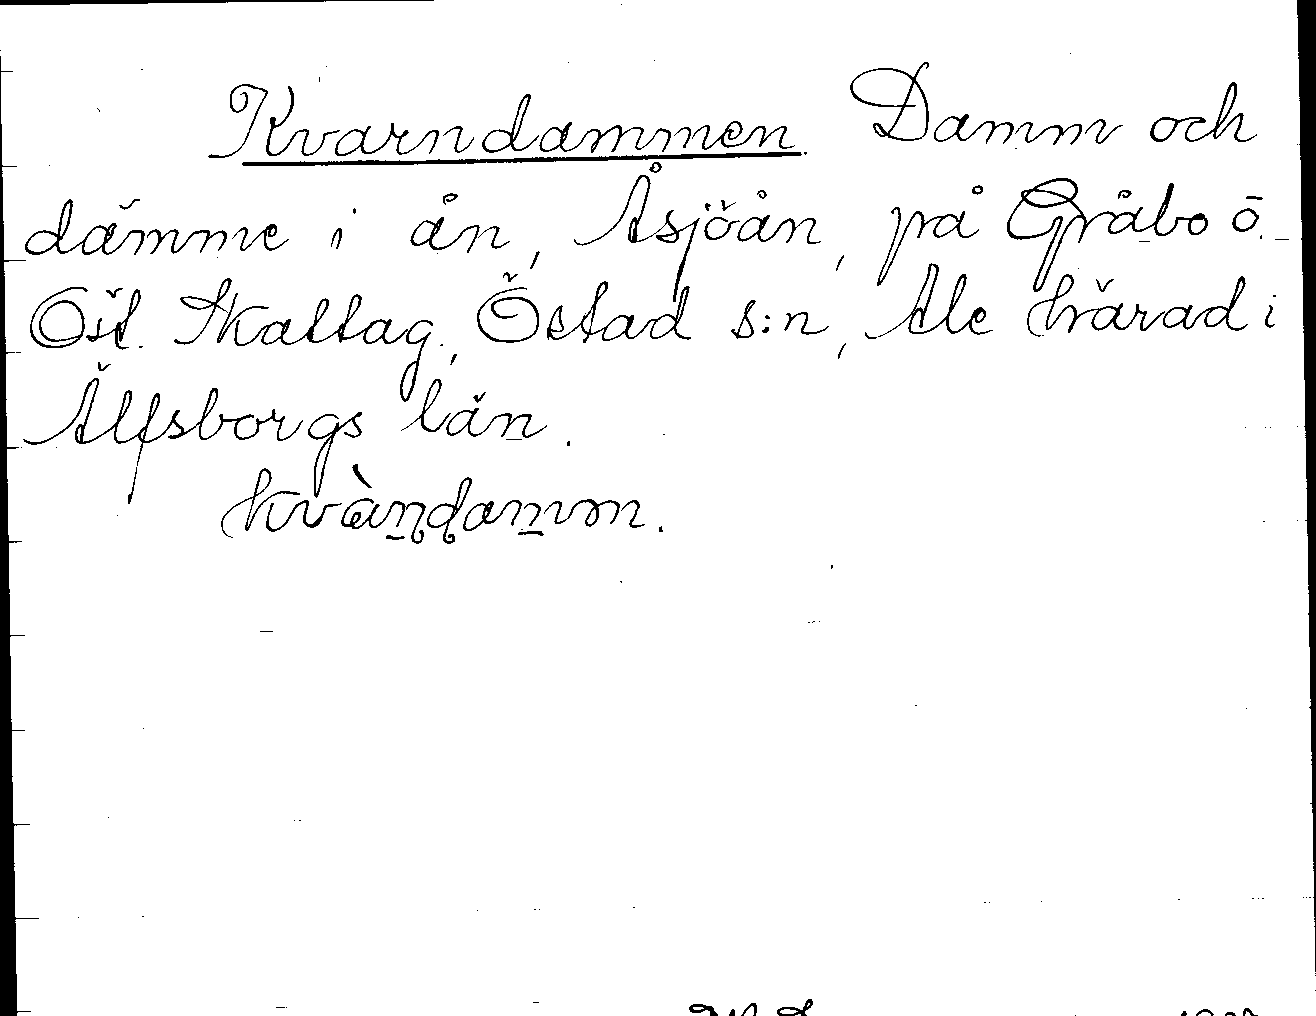 Kvarndammen. Damm och
dämme i ån, Åsjöån, på Gråbo ö.
Öst. Skattag, Östad s:n, Ale härad i
Älfsborgs län.
kvàndamm.